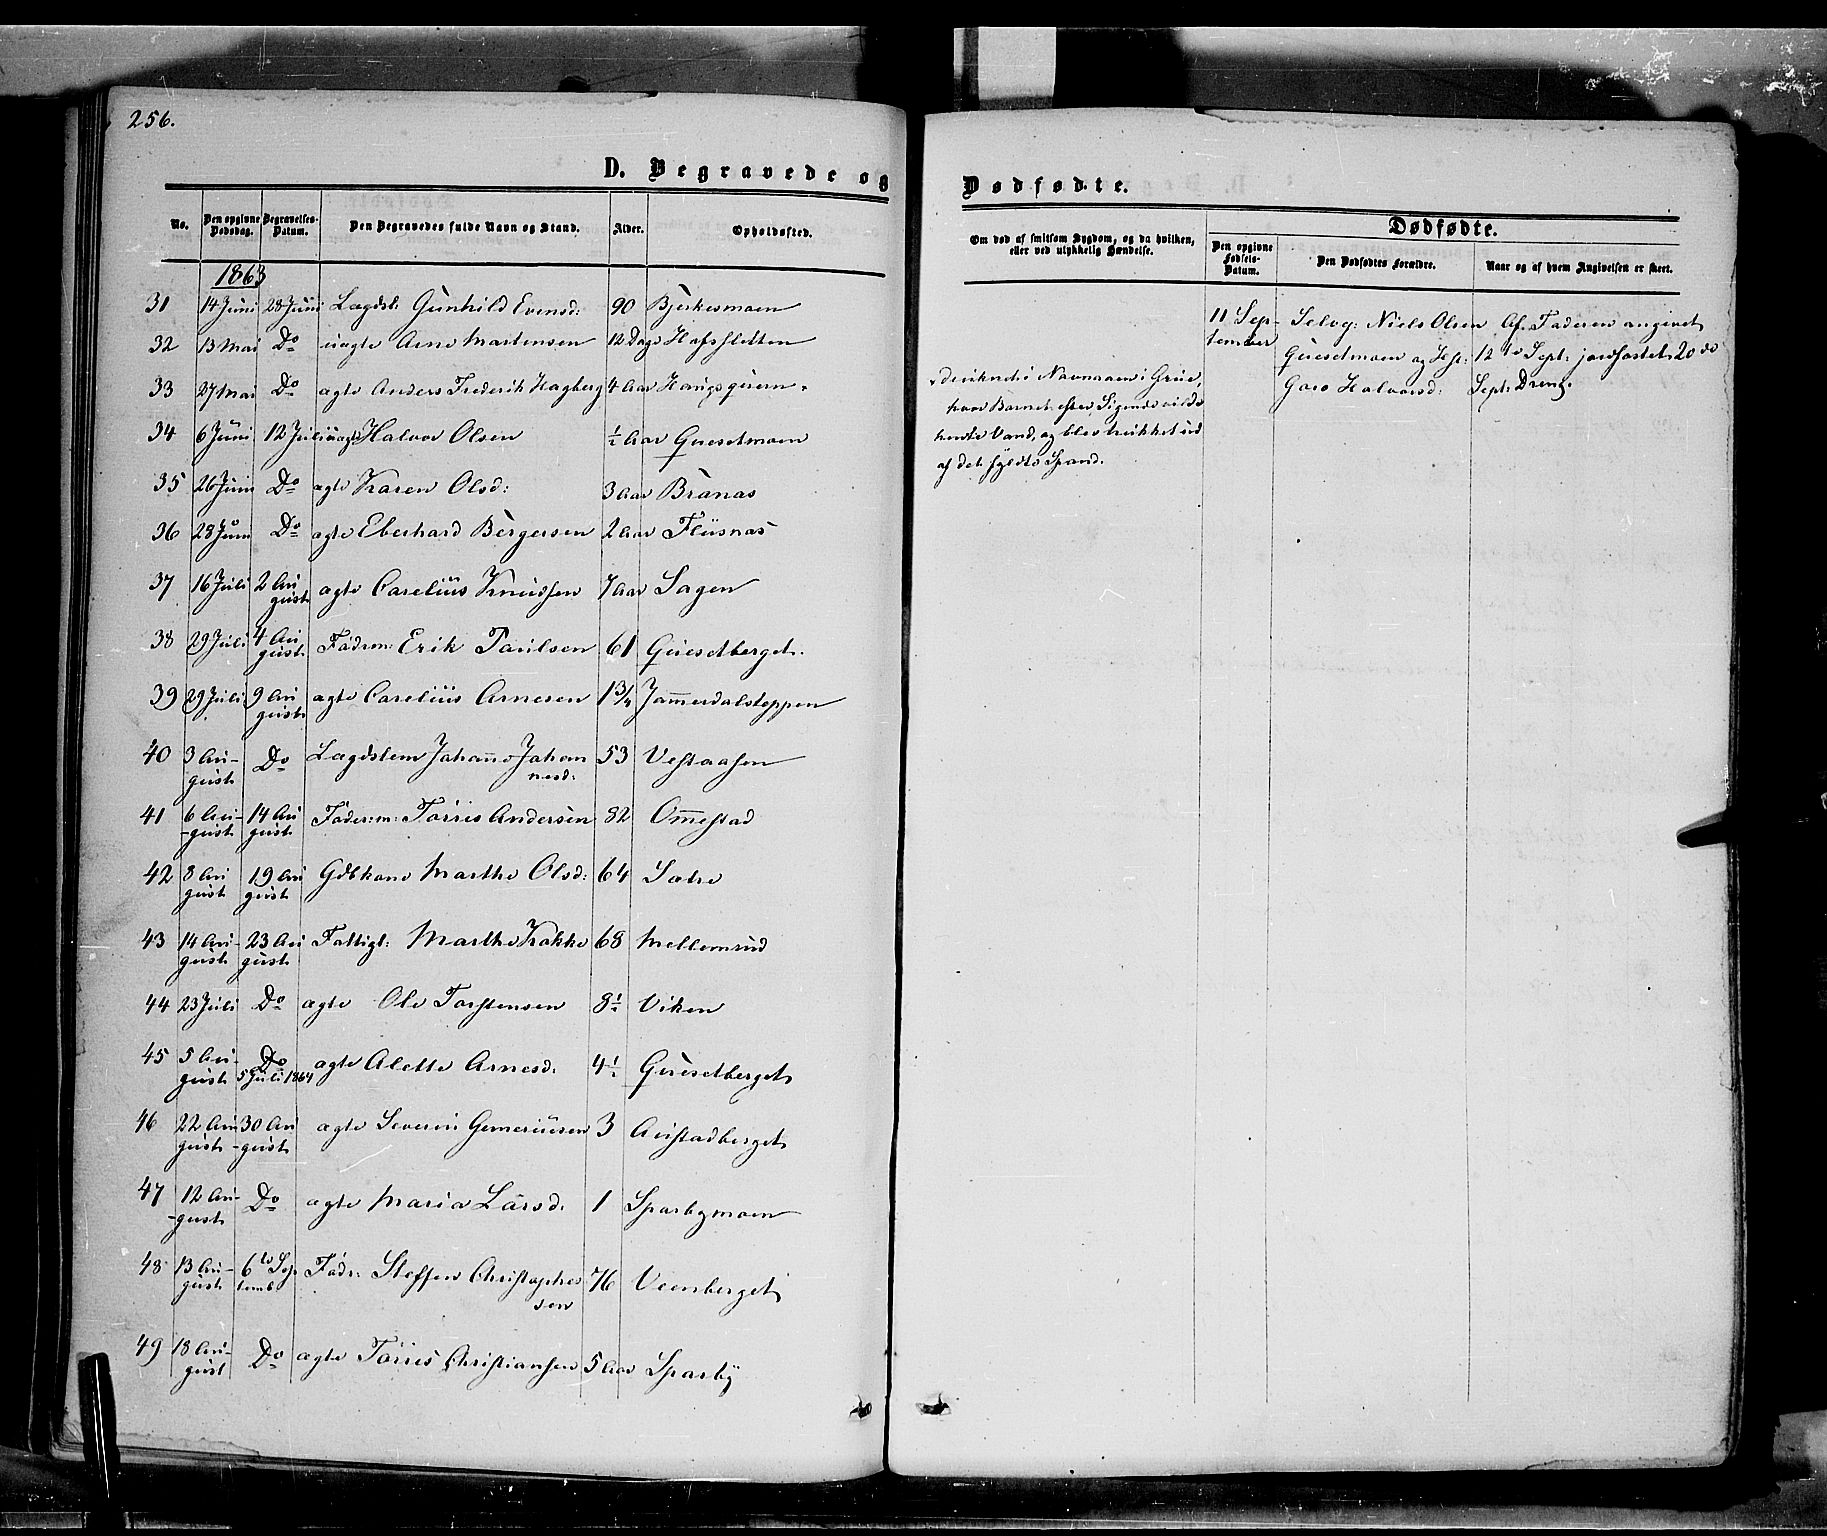 256.
D. Begravede og
No. Den opgivne Dødsdag. Begravelses-Datum. Den Begravedes fulde Navn og Stand. Alder. Opholdssted.
1863
31 14 Juni 28 Juni Lægdsl: Gunhild Evensd: 90 Bjerkesmoen
32 13 Mai Do uægte Arne Martensen 12 Dage Hafsletten
33 27 Mai Do ægte Anders Frederik Hagberg 4 Aar
34 6 Juni 12 Juli uægte Halvor Olsen ½ Aar Guesetmoen
35 26 Juni Do ægte Karen Olsd: 3 Aar Branas
36 28 Juni Do ægte Eberhard Bergersen 2 Aar Flisnas
37 16 Juli 2 Au
gust ægte Carelius Knudsen 7 Aar Sagen
38 29 Juli 4 Au
gust Føderm: Erik Paulsen 61 Guesetberget
39 29 Juli 9 Au
gust ægte Carelius Arnesen 1¾ Jam̄erdalstoppen
40 3 Au-
gust Do Lægdslem Johan̄e Johan
nesd: 53 Vestaasen
41 6 Au
-gust 14 Au
gust Føder:m: Tørris Andersen 82 Om̄estad
42 8 Au
gust 19 Au
gust Gdbkone Marthe Olsd: 64 Sætre
43 14 Au-
gust 23 Au
gust Fattigl: Marthe Kokko 68 Mellemrud
44 23 Juli Do ægte Ole Torstensen 8½ Viken
45 5 Au-
gust Do
5 Juli 1864 ægte Alette Arnesd: 4½ Guesetberget
46 22 Au
gust 30 Au
-gust ægte Severin Gumeriusen 3 Austadberget
47 12 Au-
-gust Do ægte Maria Larsd: 1 Sparbymoen
48 13 Au-
gust 6te Sep
temb Fødr: Steffen Christophe
sen 76 Veenberget
49 18 Au-
gust Do ægte Tørris Christiansen 5 Aar Sparby
Dødfødte.
Om død af smitsom Sygdom, og da hvilken, eller ved ulykkelig Hændelse.
Dødfødte.
Den opgivne Fødsels-Datum. Den Dødfødtes Forældre. Naar og af hvem Angivelsen er skeet.
11 Sep-
tember Selvej: Niels Olsen
Guesetmoen og Hst:
Goro Halvorsd:
Af Faderen angivet
12te Sept: jordfæstet 20de
Sept: Dreng.
druknet i Navnaaen i Grue,
hvor Barnet efter Sigende vilde
hente Vand, og blev trukket ud
af det fyldte Spand.